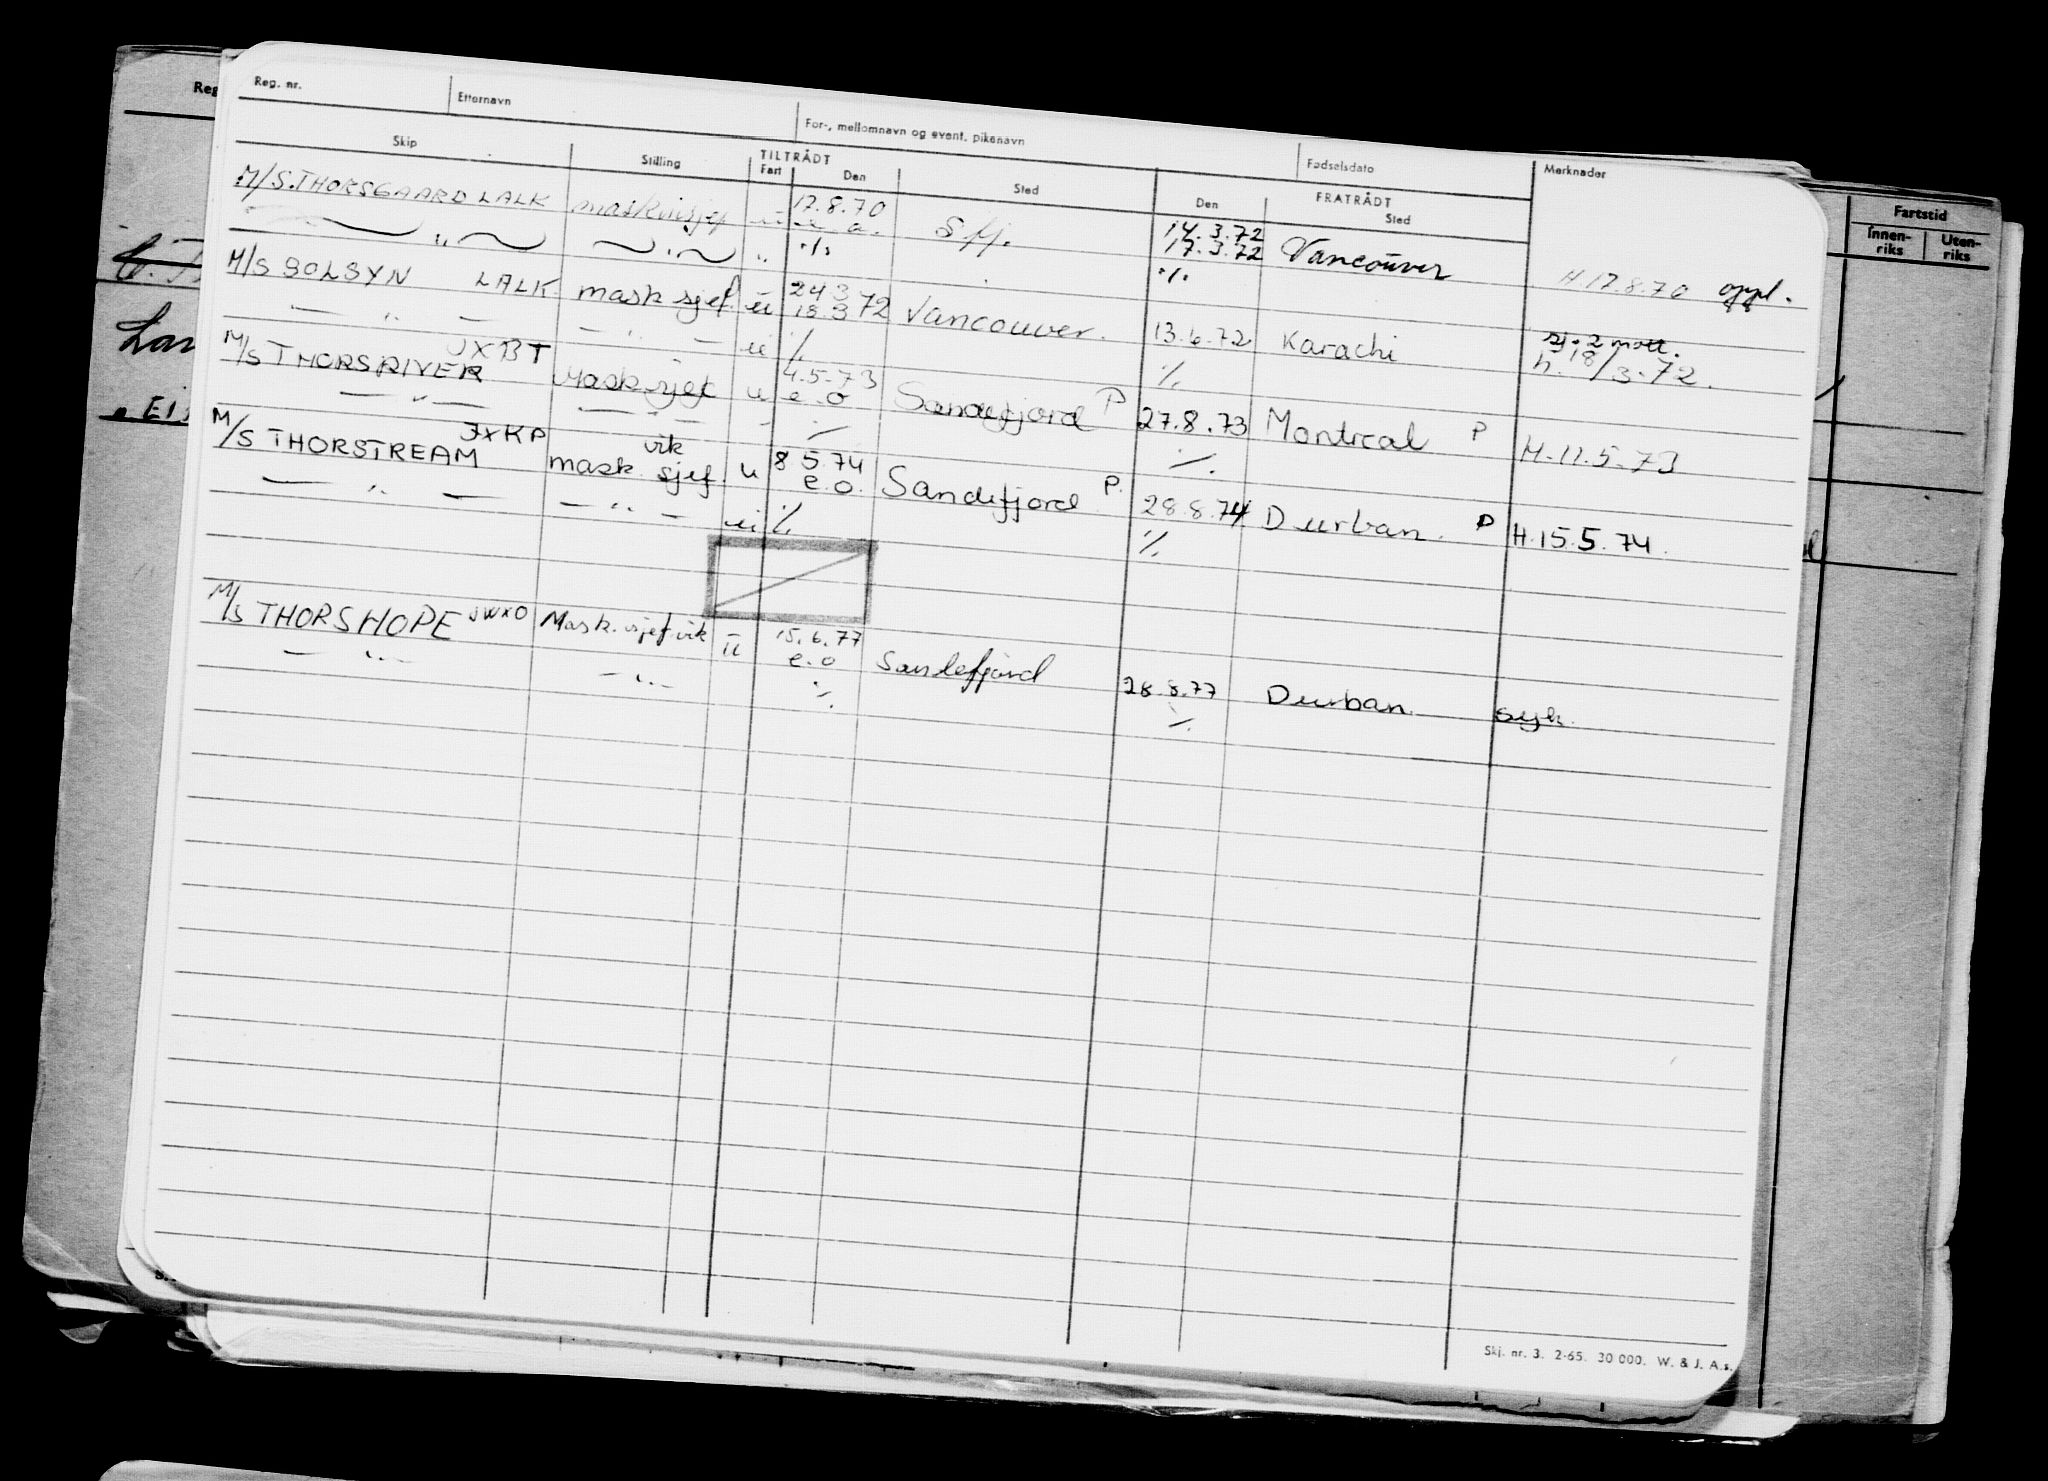 Reg. nr. Etternavn For-, mellomnavn og event. pikenavn Fødselsdato Merknader
Skip Stilling TILTRÅDT Fart Den Sted FRATRÅDT Den Sted
M/S. THORSGAARD LALK maskinsjef u 17.8.70 Sfj. 14.3.72
" " " ·/· 17.3.72 Vancouver H 17.8.70 oppl.
M/S SOLSYN LALK mask sjef u 24 3 ·/·
18 3 72 Vancouver. 13.6.72 Karachi sj. 2 mott.
— " — — " — u ·/· ·/· h. 18/3.72.
M/S THORSRIVER JXBT Mask.sjef u 4.5.73
e.o Sandefjord P 27.8.73 Montreal P H.11.5.73
— " — — " — " ·/· ·/·
M/S THORSTREAM JXKP vik
mask. sjef. u 8 5 74
e.o. Sandefjord P. 28.8.74 Durban. P H.15.5.74.
— " — — " — u ·/· ·/·
M/S THORSHOPE JWXO Mask.sjef.vik u 15.6.77
e.o Sandefjord 28.8.77 Durban. syk.
— " — — " — ·/· ·/·
Skj. nr. 3. 2-65. 30 000. W. & J. A.s.
Reg
Lar
Fartstid
Innen-
riks
Uten-
riks